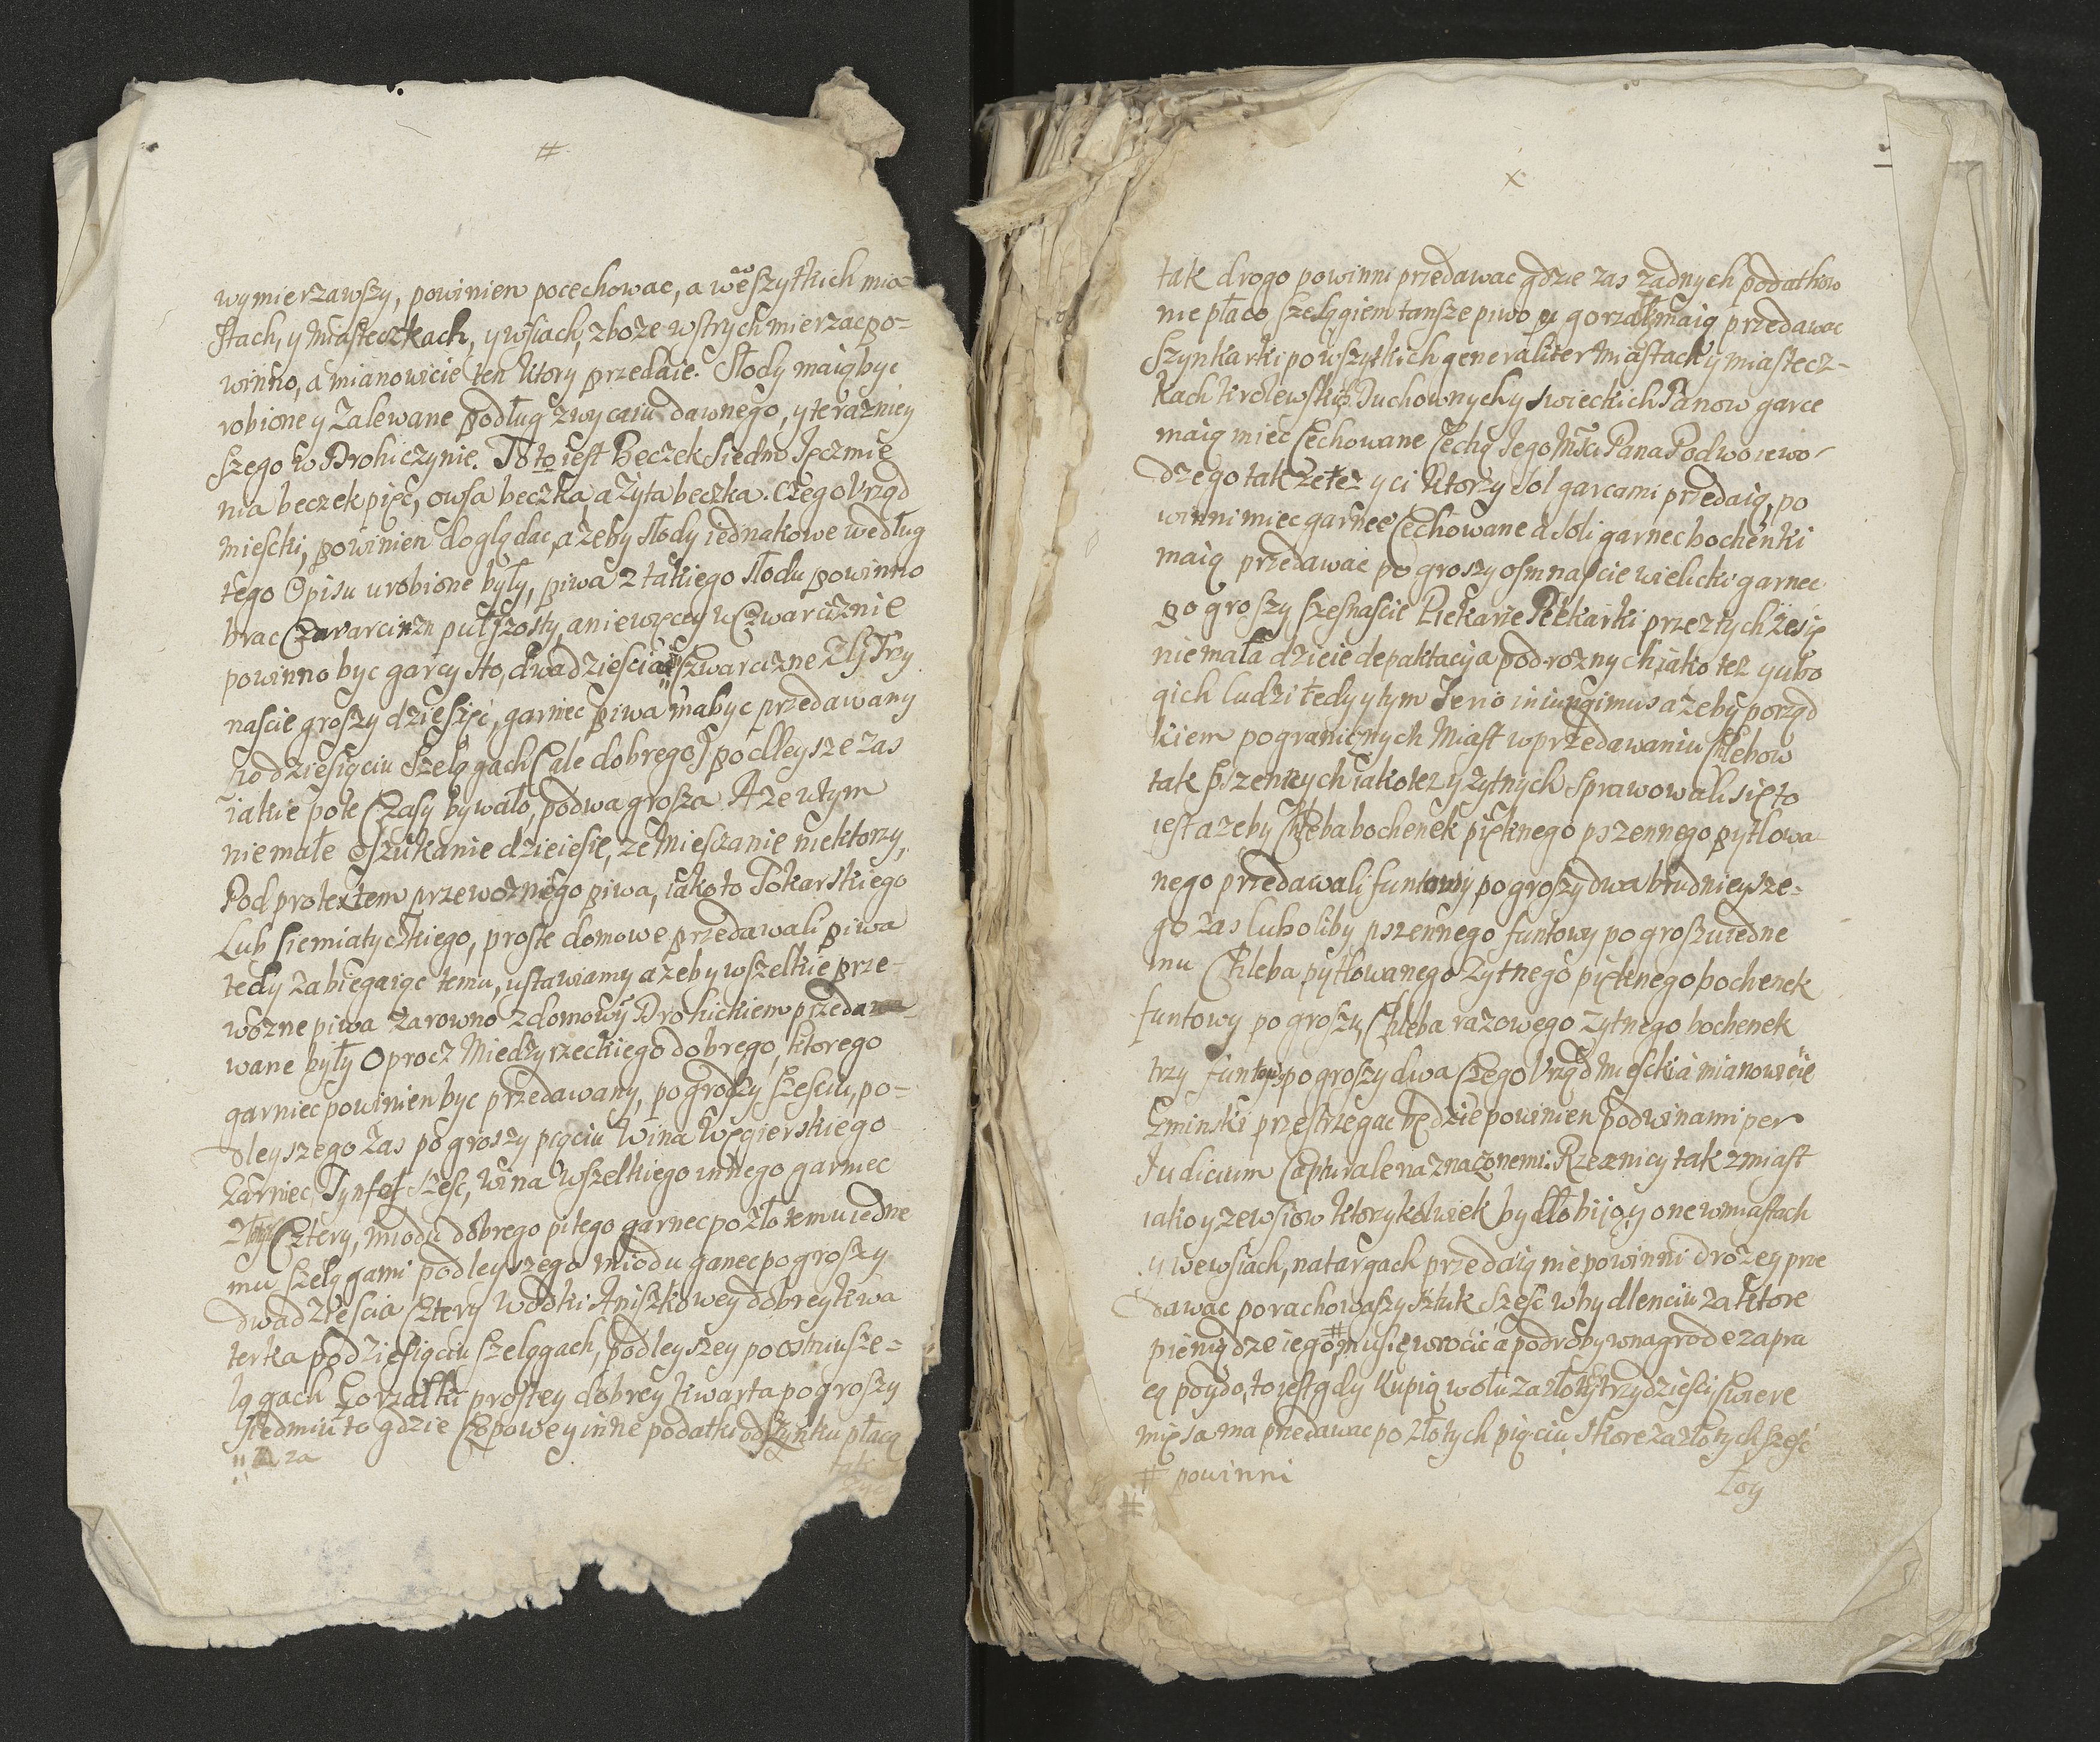 #
wymierzawszy, powinien pocechowac, a we wszytkich mia-
stach, y Miasteczkach, y wsiach, zboze wstrych mierzac po-
winno, a mianowicie ten ktory przedaie. Słody maią byc
robione y zalewane podług zwyczaiu dawnego, y terazniey
szego w Drohiczynie. To to iest Beczek siedm Jęczmie
nia beczek pięc, owsa beczka, a zyta beczka. Czego Urząd
miescki, powinien doglądac, a zeby słody iednakowe według
tego Opisu urobione były, piwa z takiego słodu powinno
brac Czwarcizn puł szosty, a niewięcey w Czwarciznie
powinno byc garcy sto, dwadziescia czwarcizne Trzy
nascie groszy dziesięć, garniec piwa ma byc przedawany
po dziesięciu Szelągach (ale dobrego) podleysze zas
iakie pote Czasy bywało, po dwa grosza. A ze w tym
niemałe oszukanie dzieiesie, ze Miesczanie niektorzy,
Pod protextem przewoznego piwa, iako to Tokarskiego
Lub siemiatyczkiego, proste domowe przedawali piwa
tedy zabiegaiąc temu, ustawiamy azeby wszelkie prze-
wozne piwa zarowno z domowym Drohickiem przeda
wane były Oprocz Miedzyrzeckiego dobrego, ktorego
garniec powinien byc przedawany, po groszy szesciu, po-
dleyszego zas po groszy pięciu Wina Węgierskiego
Garniec Tynfow szesc, Wina wszelkiego innego garniec
Cztery, miodu dobrego pitego garnec po złotemu iedne
mu szelągami podleyszego miodu ganec po groszy
dwadziescia cztery Wodki Aniszkowey dobrey kwa
terka po dziesięciu szelągach, podleyszey po osmiu sze-
lągach Gorzałki prostey dobrey kwarta po groszy
siedmiu to gdzie Czopowe y inne podatki od szynku płacą
za
tak
x
tak drogo powinni przedawac gdzie zas zadnych podatkow
nie płaco szelągiem tansze piwo y gorzałke maią przedawac
Szynkarki po wszytkich generaliter Miastach y miastecz-
kach krolewskich Duchownych y swieckich Panow garce
maią miec Cechowane Cechą Jego Mści Pana Podwoiewo-
dzego tak ze tez y ci ktorzy sol garcami przedaią, po
winni miec garnce Cechowane a soli garnec bochenki
maią przedawac po groszy osmnascie wielicki garnec
po groszy szesnascie Piekarze Piekarki przez tych ze się
niemała dzieie depaktacyia podroznych iako tez y ubo
gich ludzi tedy y tym Serio iniungimus azeby porząd
kiem pogranicznych Miast w przedawaniu Chlebow
tak pszennych iako tez y zytnych Sprawowali się to
iest azeby Chleba bochenek pięknego pszennego pytlowa
nego przedawali funtowy po groszy dwa brudnieysze-
go zas lubo liby pszennego funtowy po groszu iedne
mu Chleba pytlowanego Zytnego pięknego bochenek
funtowy po groszu, Chleba razowego zytnego bochenek
trzy funtowy po groszy dwa Czego Urząd Miescki a mianowicie
Gminski przestrzegac będzie powinien pod winami per
Judicium Capturale naznaczonemi. Rzeznicy tak z miast
iako y ze wsiow ktorzykolwiek bydło bijo, y one w miastach
y we wsiach, na targach przedaią nie powinni drozey prze
dawac porachowaszy sztuk szesc w bydlenciu za ktore
pieniądze iego # musię wrocić a podroby w nagrode za pra
cą poydo, to iest gdy kupią wołu za złotych trzydziesci cwierc
mięsa ma przedawac po złotych pięciu skore za złotych szesc
# powinni
Łoy
#